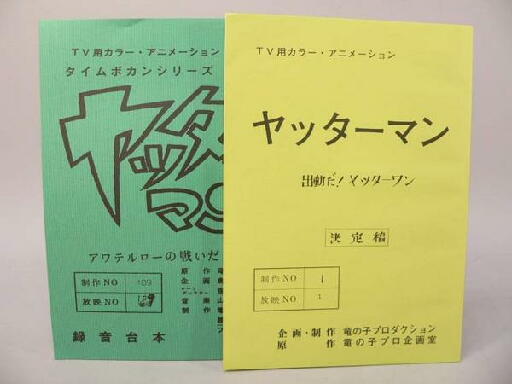 TV用カラー・アニメーション
タイムボカンシリーズ
ヤッター
マン
アワテルローの戦いだ
制作NO 109
放映NO
原作 竜
企画
音
制作
録音台本
TV用カラー・アニメーション
ヤッターマン
出動だ!ヤッターワン
決定稿
制作NO 1
放映NO 1
企画・制作 竜の子プロダクション
原作 竜の子プロ企画室